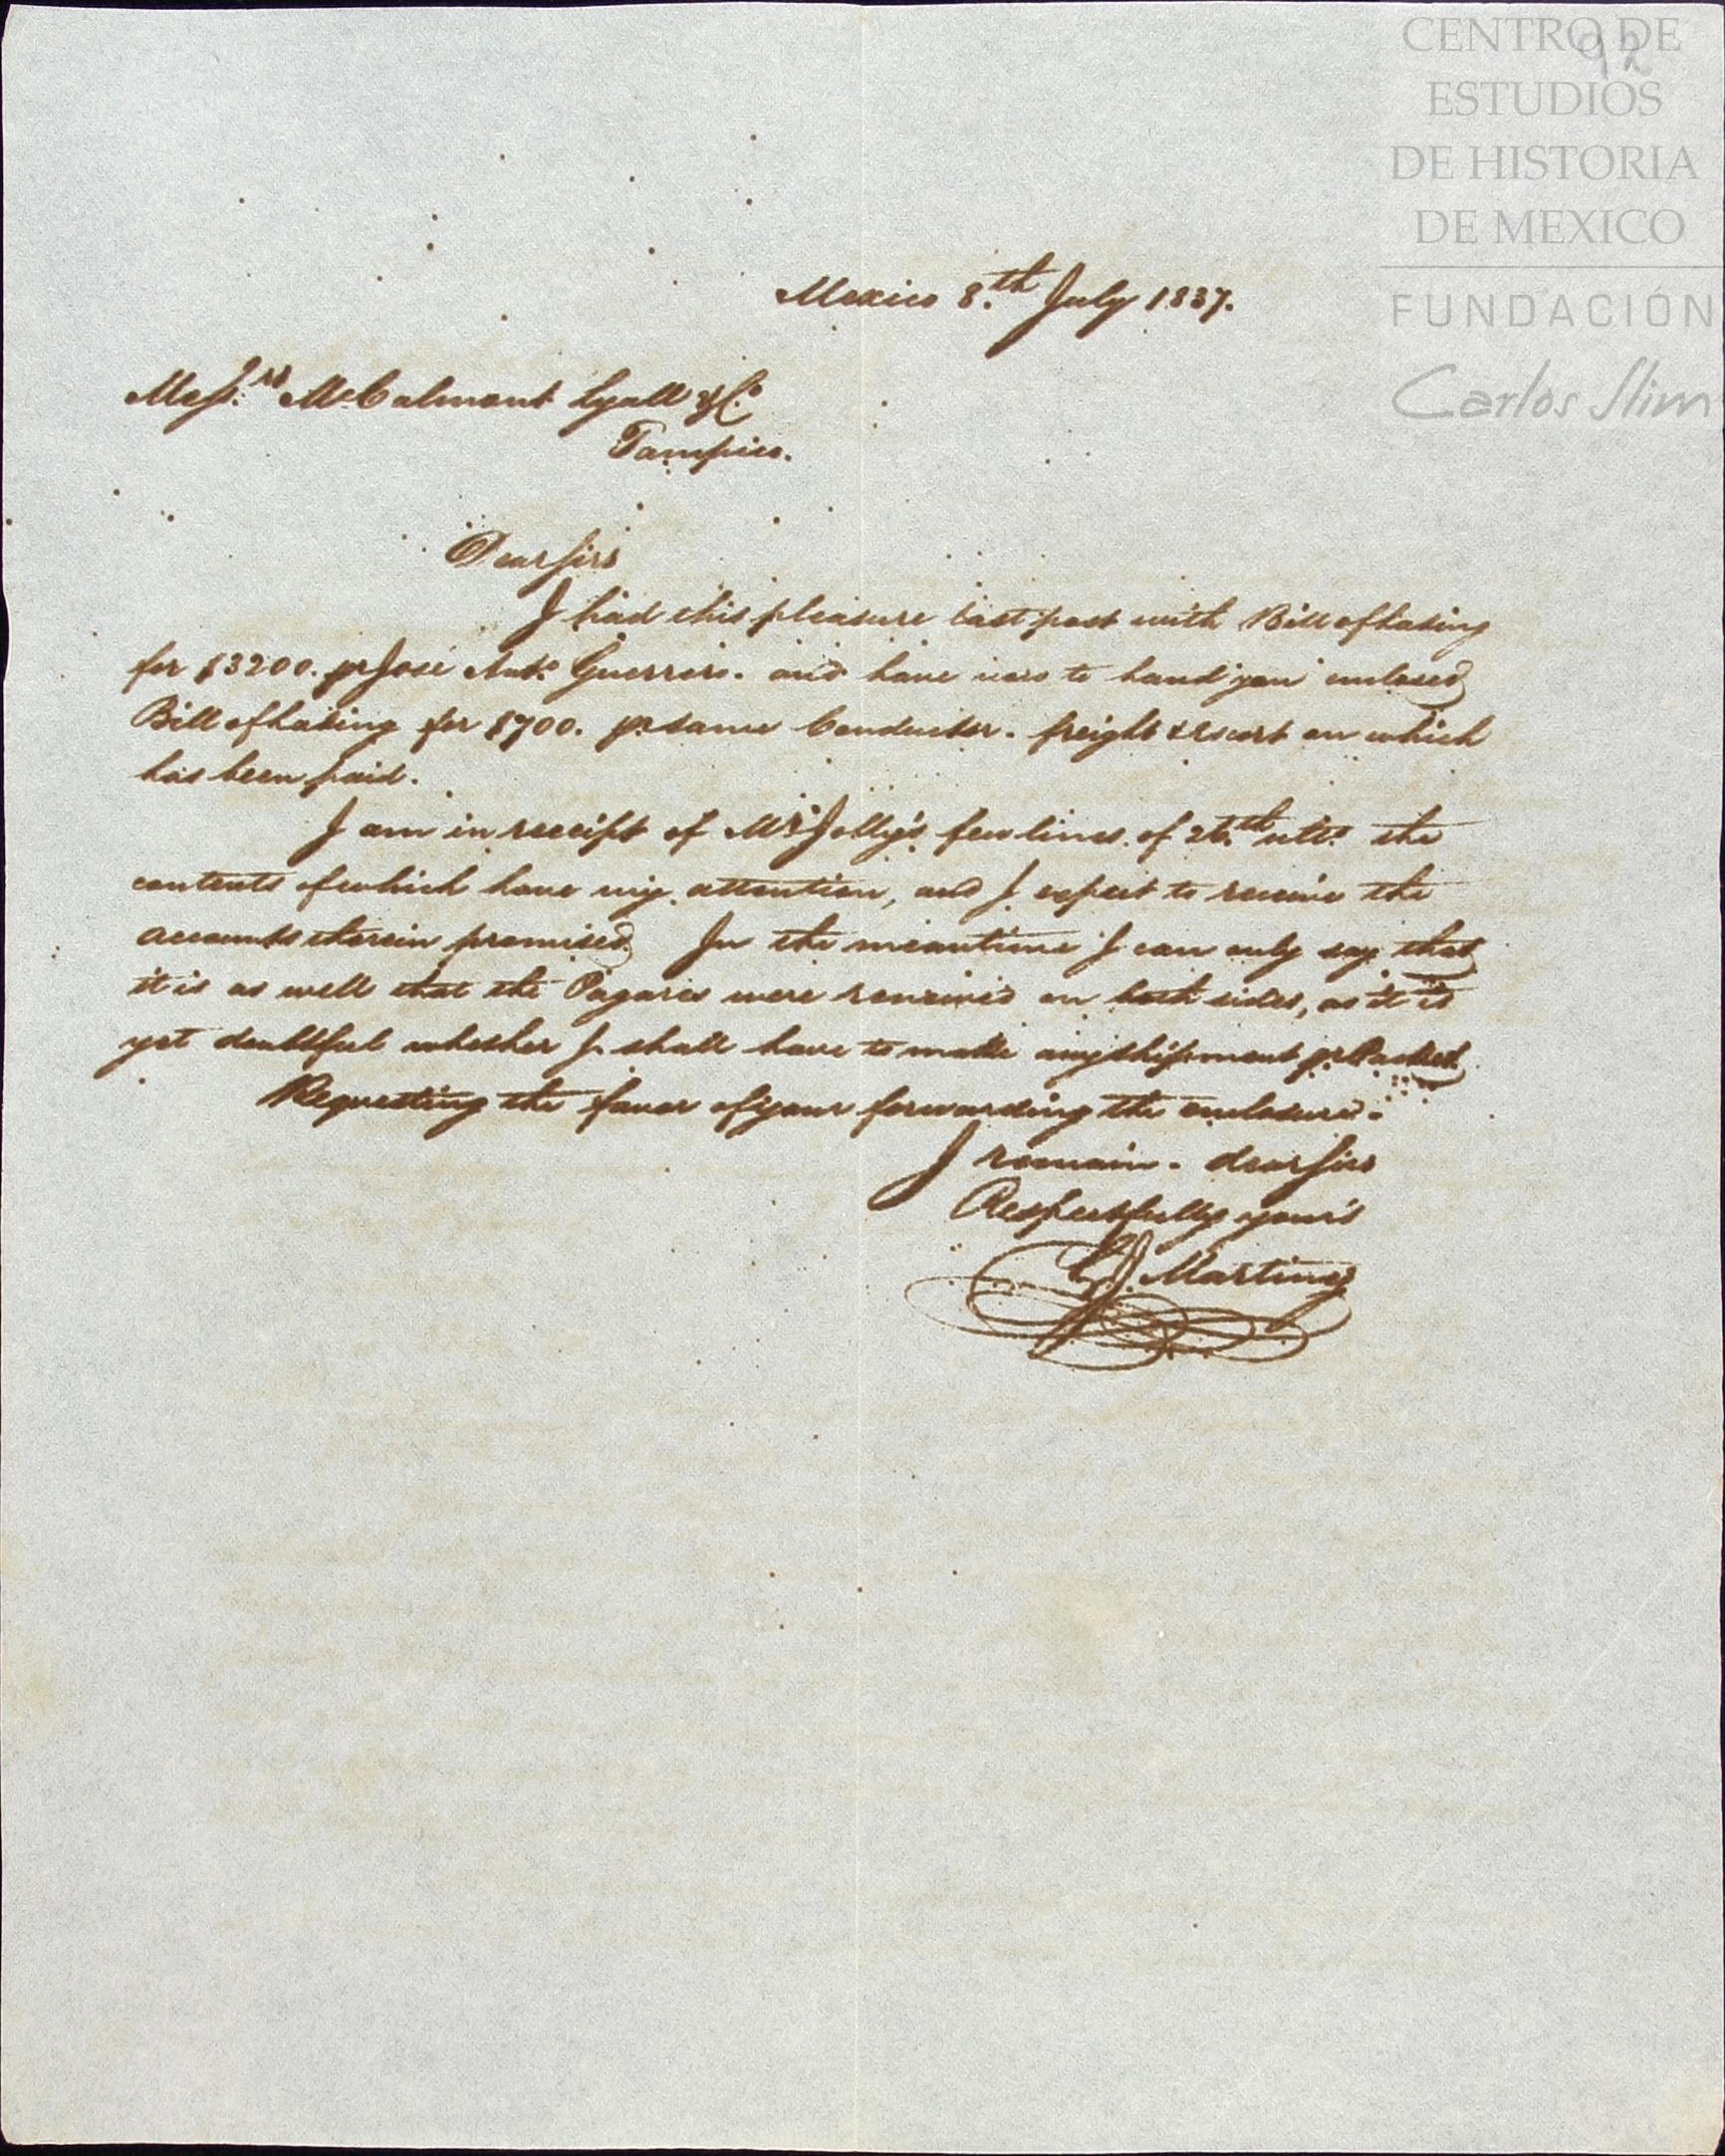 92
CENTRO DE
ESTUDIOS
DE HISTORIA
DE MEXICO
FUNDACIÓN
Carlos Slim
Mexico 8.th July 1837.
Mess.rs McCalmont Lyall & Co.
Tampico.
Dear Sirs
I had this pleasure last post with Bill of Lading
for $3200. pr José Anto. Guerrero. and have now to hand you enclosed
Bill of Lading for $700. pr same Conductor. freight & escort on which
has been paid.
I am in receipt of Mr. Jolly's few lines of 26.th ulto. the
contents of which have my attention, and I expect to receive the
accounts therein promised. In the meantime I can only say that
it is as well that the Pagares were renewed on both sides, as it is
yet doubtful whether I shall have to make any shipment pr Packet.
Requesting the favor of your forwarding the enclosure.
I remain. dear Sirs
Respectfully your's
Martinez